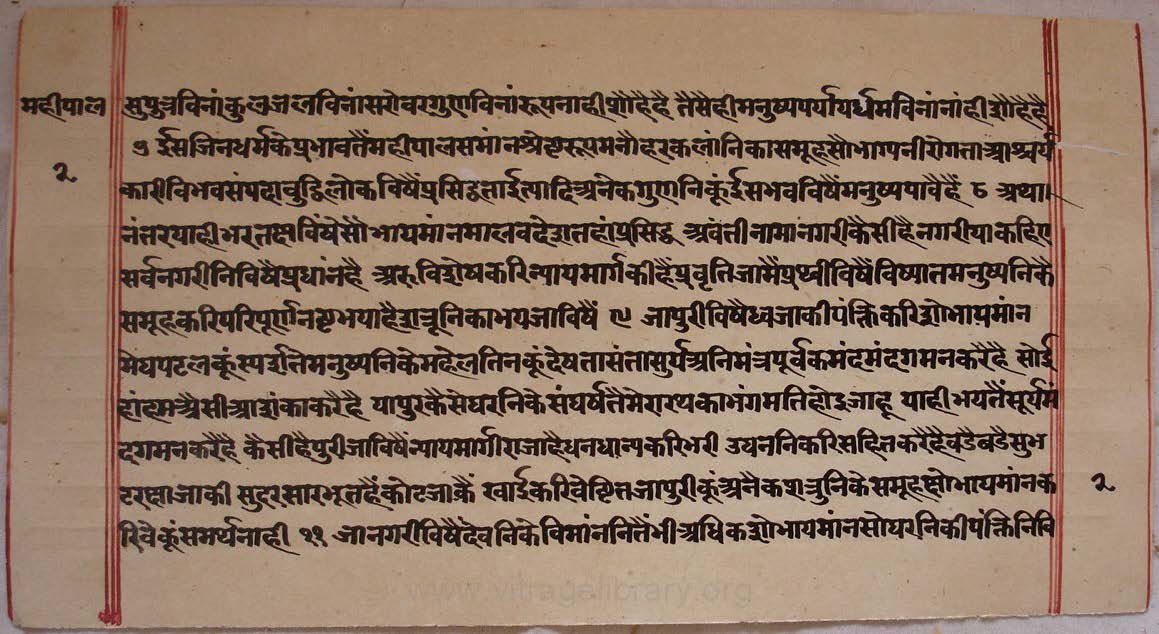 महीपाल
२
सुपुत्रविनांकुलजलविनांसरोवरगुणविनांरूपनाहीशोहैहै तैसैहीमनुष्यपर्यायधर्मविनांनांहीशोहैहै
७ ईसजिनधर्मकेप्रभावतैंमहीपालसमांनश्रेष्टरूपमनोहरकलांनिकासमूहसौभाग्यनीरोगताआश्चर्य
कारीविभवसंपदाबुद्धिलोकविषैंप्रसिद्धताईत्यादिअनेकगुणनिकूंईसभवविषैंमनुष्यपावैहैं ८ अथा
नंतरयाहीभरतक्षेत्रविषैंसोभायमांनमालवदेशतहांप्रसिद्ध अवंतीनामांनगरीकैसीहैनगरीयाकहिए
सर्वनगरीनिविषैप्रधांनहै अरुविशेषकरिन्यायमार्गकीहैप्रवृतिजामैंपृथ्वीविषैंविष्यातमनुष्यनिकै
समूहकरिपरिपूर्णनष्टभयाहैशत्रूनिकाभयजाविषैं ९ जापुरीविषैध्वजाकीपंक्तिकरिशोभायमांन
मेघपटलकूंस्पर्शतेमनुष्यनिकेमहेलतिनकूंदेषतासंतासूर्यअनिमंत्रपूर्वकमंदमंदगमनकरैहै सोई
हांहमअैसीआशंकाकरैहै यापुरकैसेघरनिकेसंघर्षतैमेरारथकाभंगमतिहोइजाहू याहीभयतैंसूर्यमं
दगमनकरैहै कैसीहैपुरीजाविषैंन्यायमार्गीराजाहैधनधान्यकरिभरी उपवननिकरिसहितकरैहैबडैबडैसुभ
टरक्षाजाकी सुदरसारभूतहैंकोटजाकैं खाईकरिवेष्टितजापुरीकूंअनेकशत्रुनिकेसमूहक्षोभायमांनक
रिवेकूंसमर्थनाही ११ जानगरीविषैंदेवनिकेविमांननितैंभीअधिकशोभायमांनसोघरनिकीपंक्तिनिवि
२
www.vitragelibrary.org